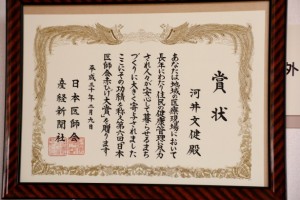 賞状
河井文健殿
あなたは地域の医療現場において
長年にわたり住民の健康管理に尽力
され人々が安心して暮らせるまち
づくりに大きく寄与されました
ここにその功績を称え第六回日本
医師会赤ひげ大賞を贈ります
平成三十年二月九日
日本医師会
産経新聞社
外